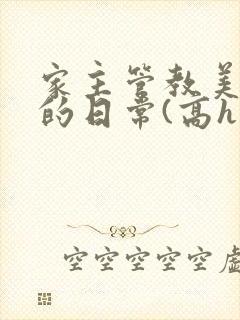 家主管教美
的日常(高h
空空空空空虚